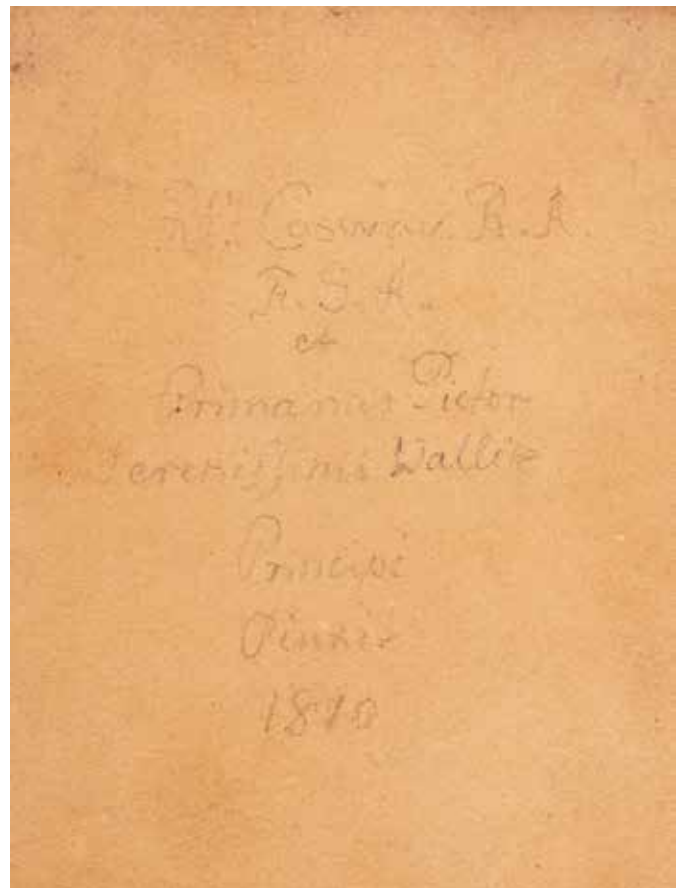 Cosway. R.A.
F.S.A.
et
Primarius Pictor
Serenissimi Walliæ
Principi
Pinxit
1810